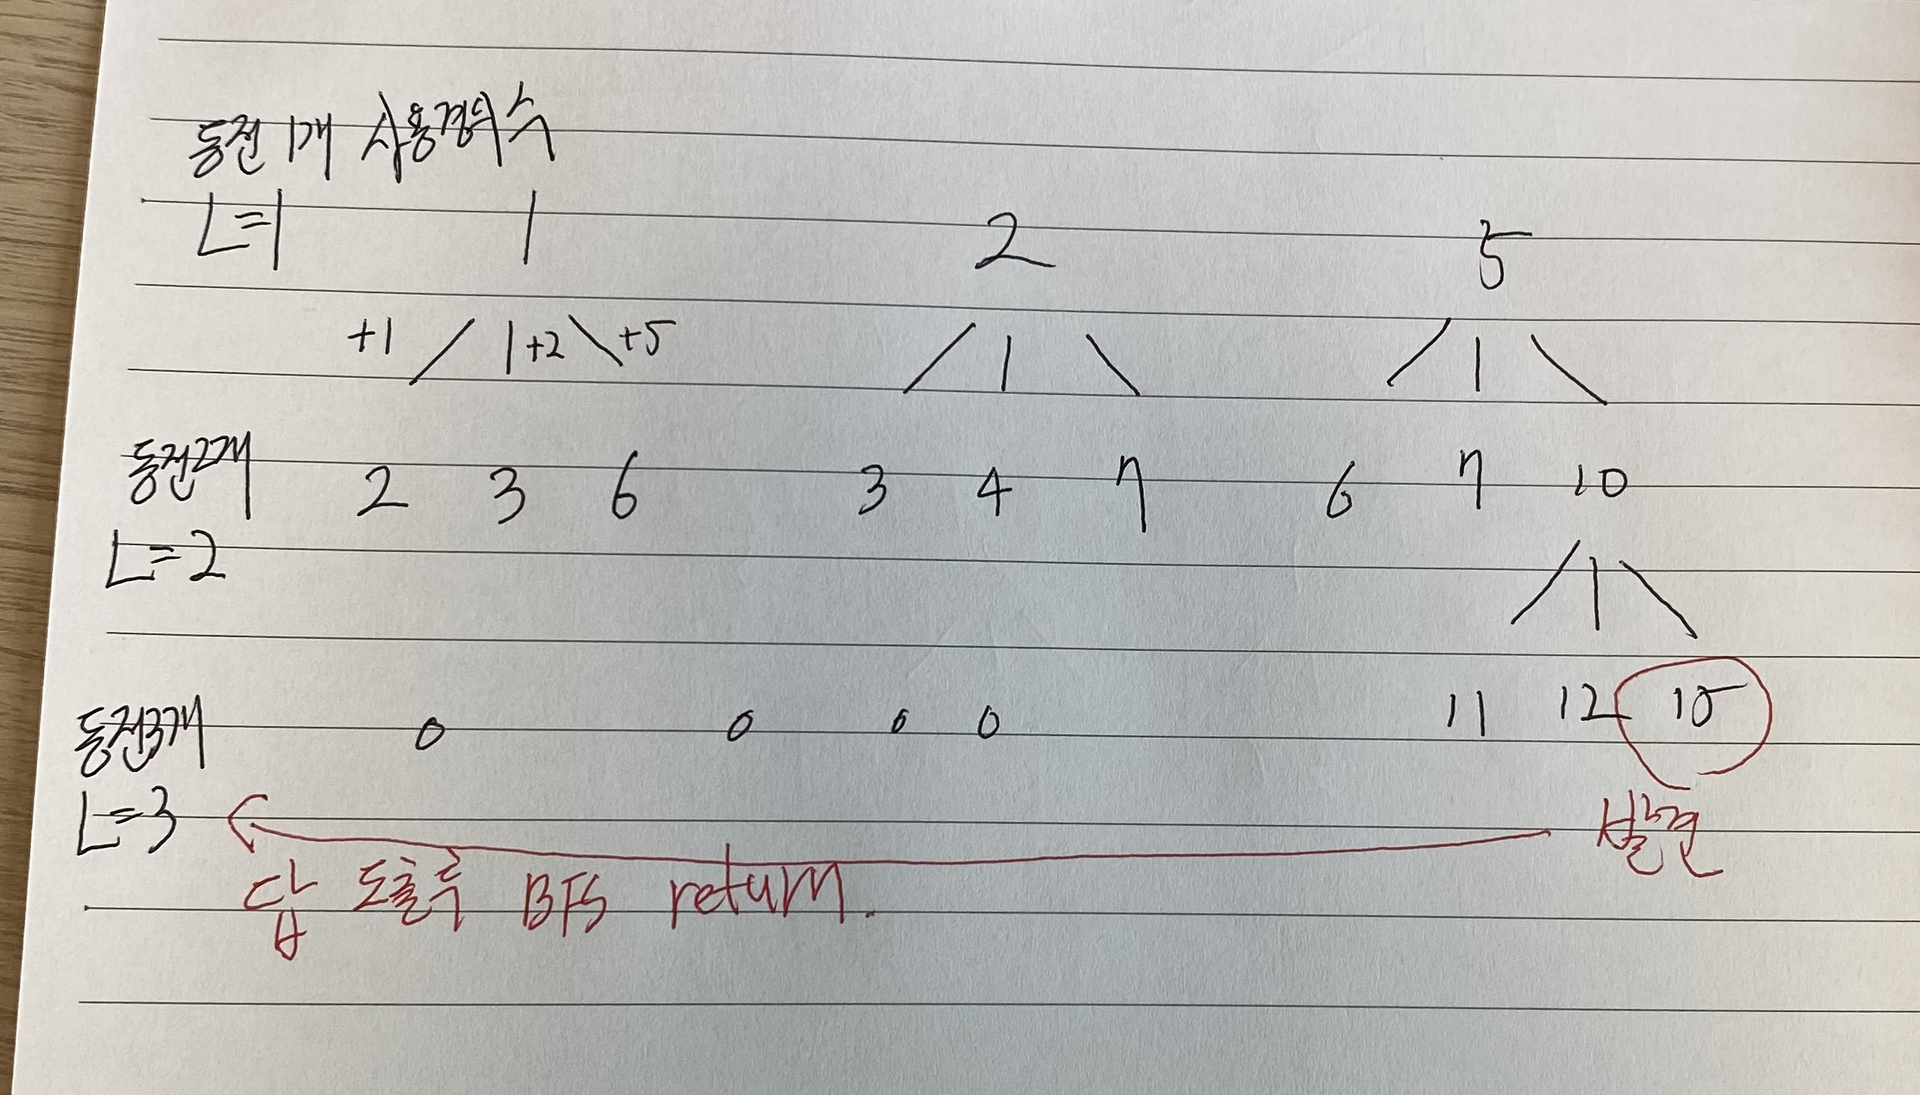 동전 1개 사용경우수
L=1 1 2 5
+1 +2 +5
동전2개 2 3 6 3 4 7 6 7 10
L=2
동전3개 0 0 0 0 11 12 15
L=3 발견
답 도출후 BFS return.